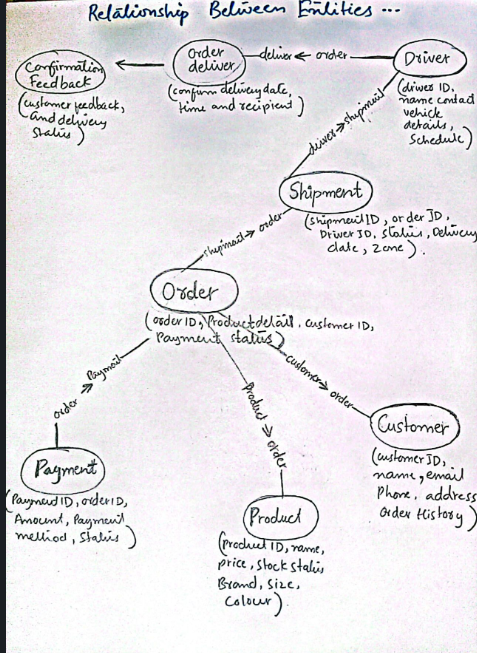 Relationship Between Entities ...
Confirmation
Feedback
(customer feedback,
and delivery
status)
Order
deliver
(confirm delivery date,
time and recipient)
deliver ← order
Driver
(driver ID,
name contact
vehicle
details,
Schedule)
driver → shipmail
Shipment
(shipment ID, order ID,
Driver ID, status, Delivery
date, Zone).
shipmail → order
Order
(order ID, Product detail, customer ID,
Payment status)
order → Paymail
Product → order
customer → order
Payment
(Payment ID, order ID,
Amount, Payment
method, Status)
Product
(product ID, name,
price, stock status
Brand, size,
colour).
Customer
(customer ID,
name, email
Phone, address
Order History)